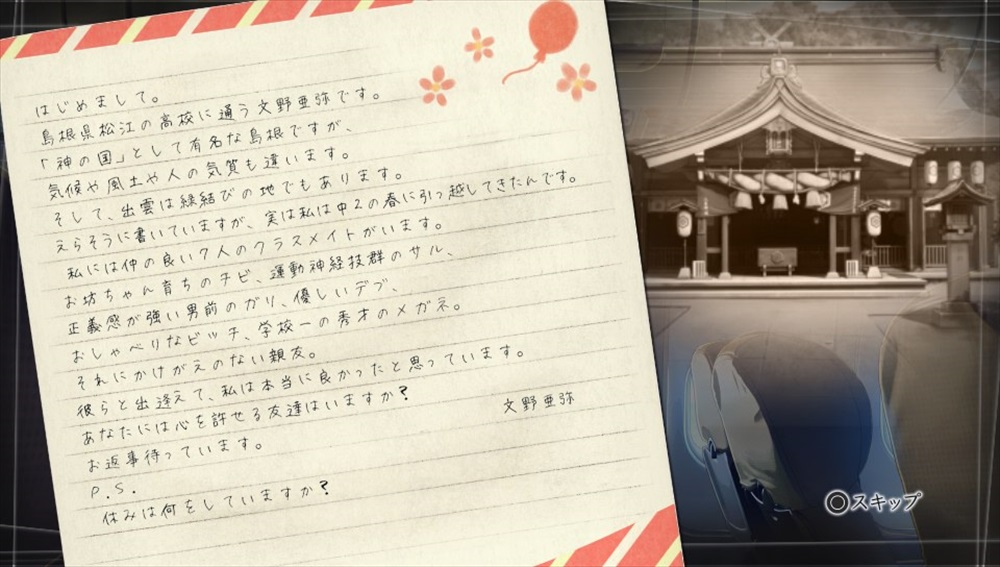 はじめまして。
島根県松江の高校に通う文野亜弥です。
「神の国」として有名な島根ですが、
気候や風土や人の気質も違います。
そして、出雲は縁結びの地でもあります。
えらそうに書いていますが、実は私は中2の春に引っ越してきたんです。
私には仲の良い7人のクラスメイトがいます。
お坊ちゃん育ちのチビ、運動神経抜群のサル、
正義感が強い男前のガリ、優しいデブ、
おしゃべりなビッチ、学校一の秀才のメガネ。
それにかけがえのない親友。
彼らと出逢えて、私は本当に良かったと思っています。
あなたには心を許せる友達はいますか?
文野亜弥
お返事待っています。
P.S.
休みは何をしていますか?
スキップ